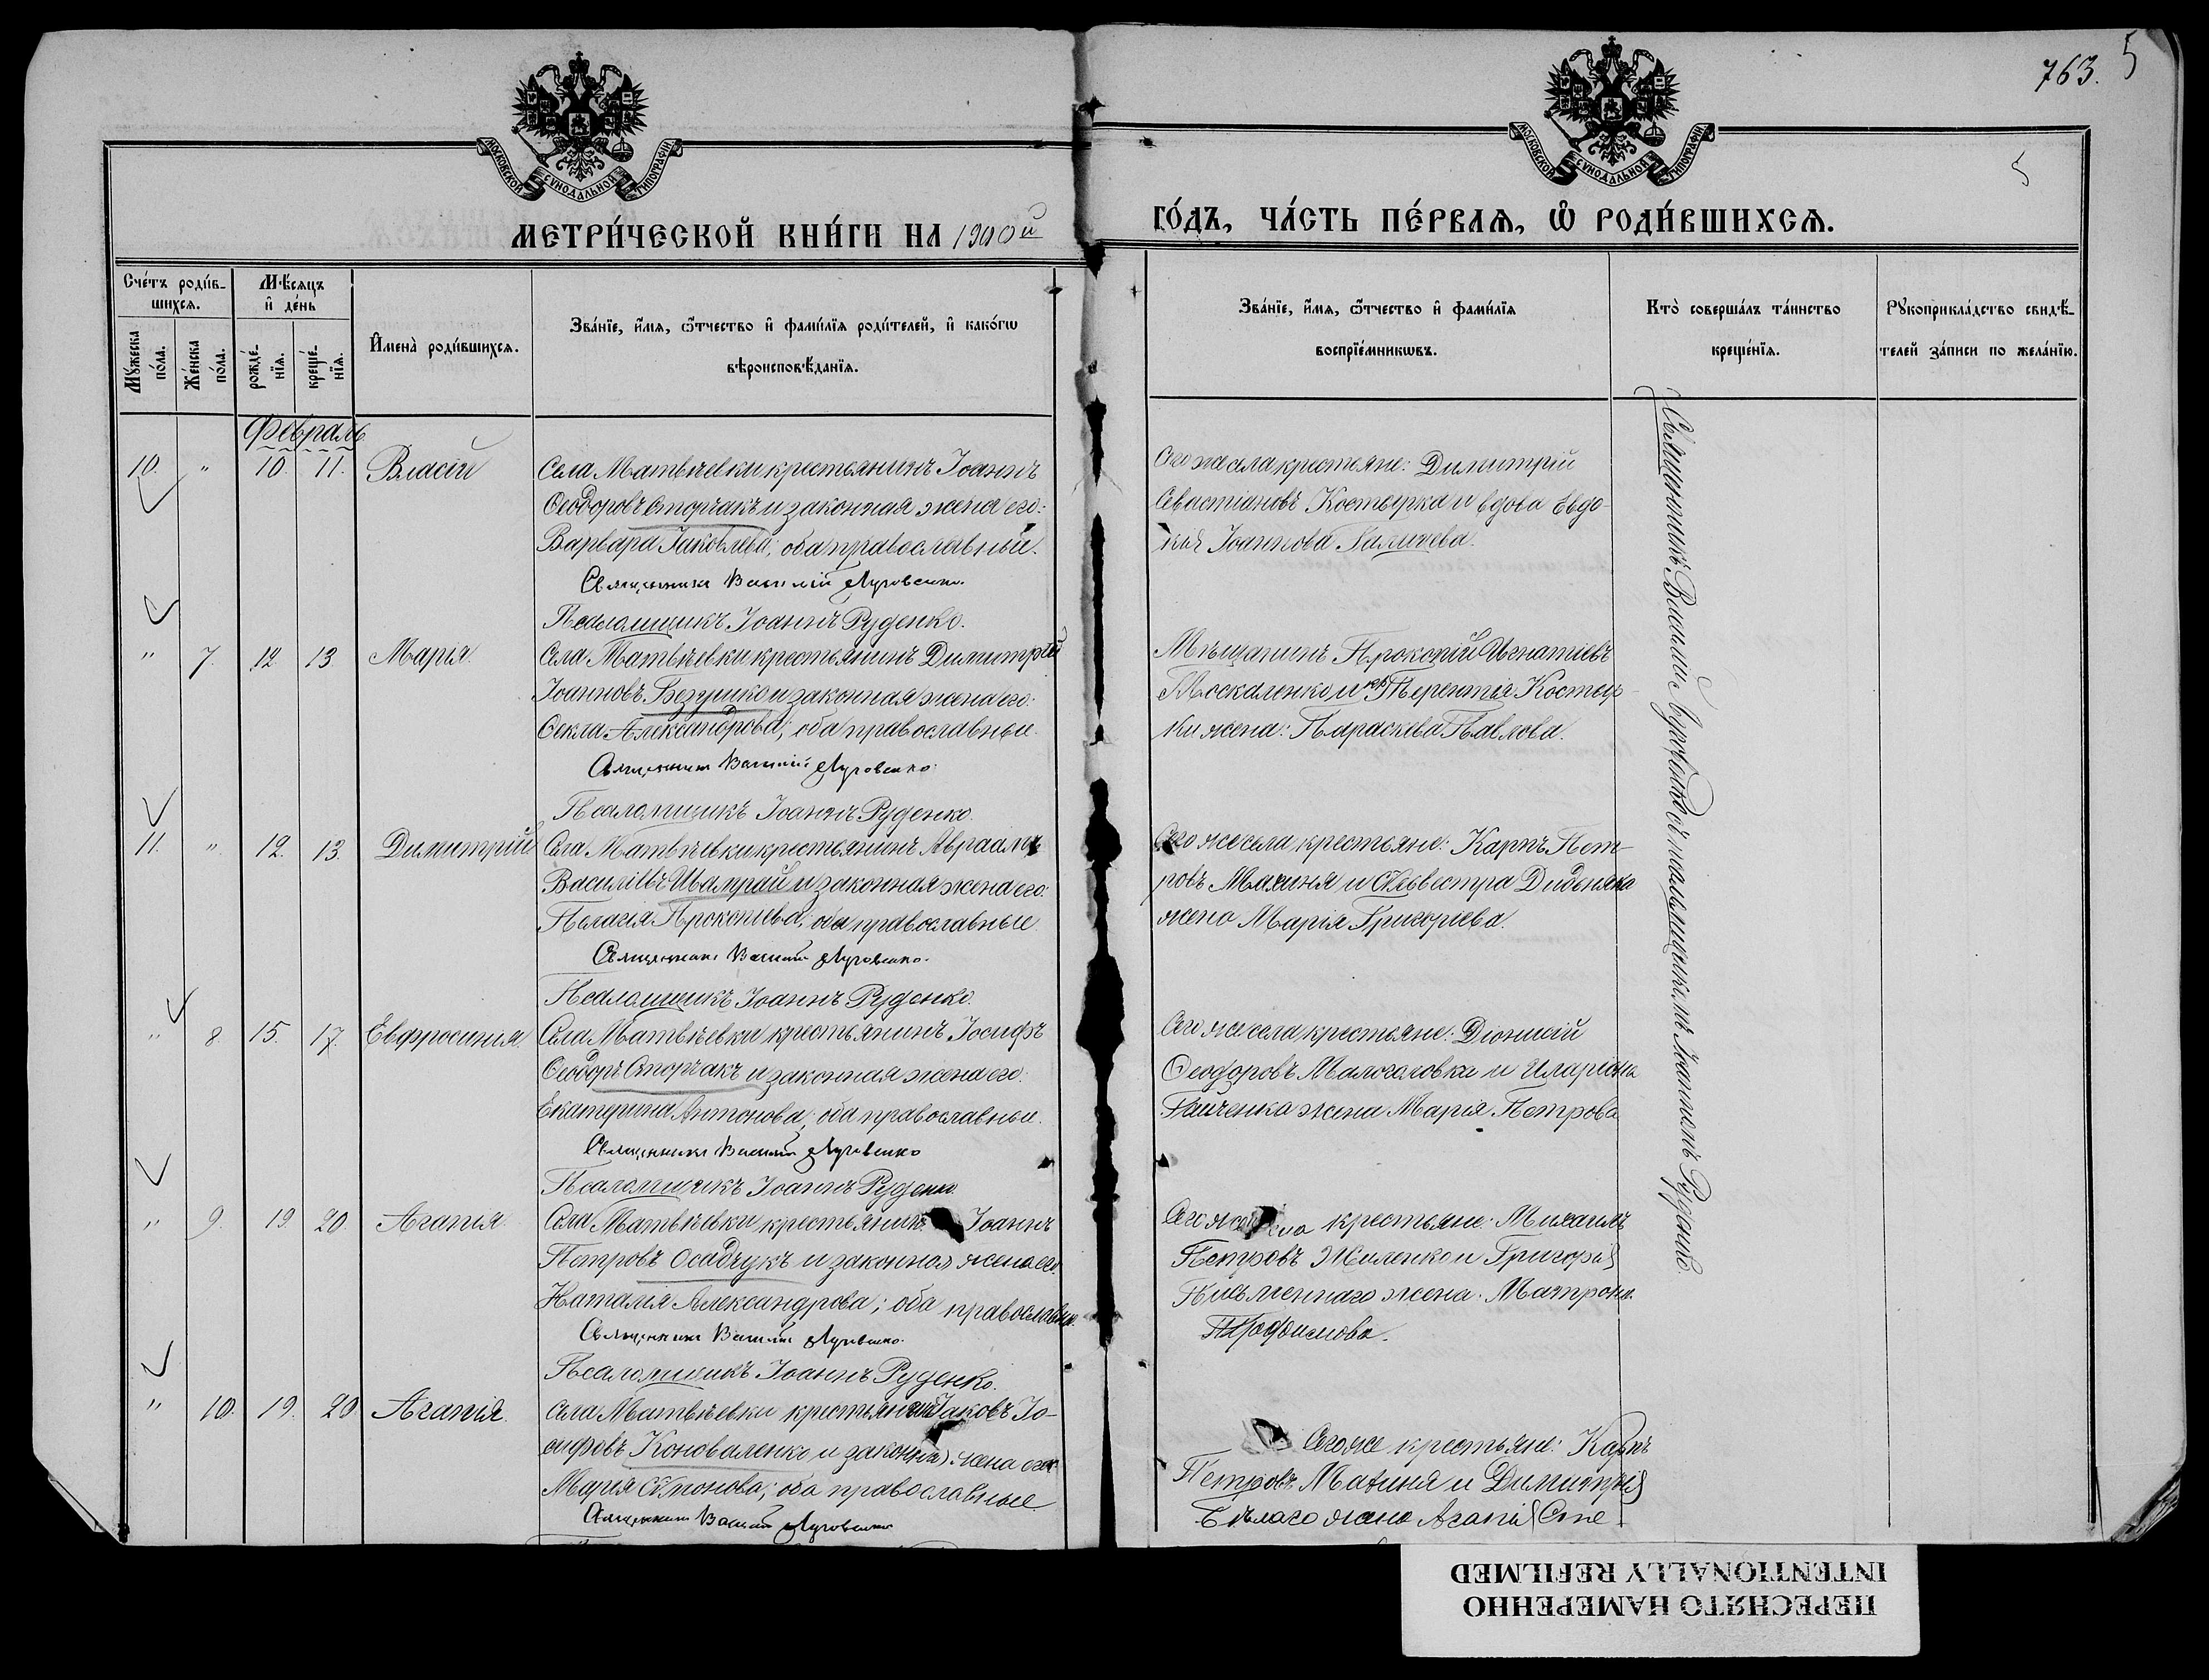 763. 5
5
МОСКОВСКОЙ СѴНОДАЛЬНОЙ ТИПОГРАФІИ
МОСКОВСКОЙ СѴНОДАЛЬНОЙ ТИПОГРАФІИ
МЕТРИ́ЧЕСКОЙ КНИ́ГИ НА 1900й
ГО́ДЪ, ЧА́СТЬ ПЕ́РВАѦ, Ѡ РОДИ́ВШИХСѦ.
Сче́тъ роди́в-
шихсѧ.
Мѣ́сѧцъ
и де́нь
Мꙋ́жеска по́ла.
Же́нска по́ла.
рожде́-нїѧ.
креще́-нїѧ.
И҆мена̀ роди́вшихсѧ.
Зва́нїе, и҆́мѧ, ѻ҆́тчество и҆ фами́лїѧ роди́телей, и҆ како́гѡ
вѣроисповѣ́данїѧ.
Зва́нїе, и҆́мѧ, ѻ҆́тчество и҆ фами́лїѧ
воспрїе́мникѡвъ.
Кто̀ соверша́лъ та́инство
креще́нїѧ.
Рꙋкоприкла́дство свидѣ́-
телей за́писи по жела́нїю.
Февраль
10. " 10. 11. Власій
Села Матвѣевки крестьянинъ Іоаннъ
Ѳеодоровъ Сторчакъ и законная жена его:
Варвара Іаковлева; оба православные.
Священникъ Василій Луговенко.
Псаломщикъ Іоаннъ Руденко.
Того же села крестьяне: Димитрій
Севастіановъ Костырка и вдова Евдо-
кія Іоаннова
" 7. 12 13. Марія.
Села Матвѣевки крестьянинъ Димитрій
Іоанновъ и законная жена его:
Ѳекла Александрова; оба православные.
Священникъ Василій Луговенко.
Псаломщикъ Іоаннъ Руденко.
Мѣщанинъ Прокопій Игнатіевъ
Москаленко и кр. Терентія Костыр-
ки жена: Параскева Павлова.
11. " 12. 13. Димитрій
Села Матвѣевки крестьянинъ Авраамъ
Василіевъ и законная жена его:
Пелагія Прокопіева; оба православные
Священникъ Василій Луговенко.
Псаломщикъ Іоаннъ Руденко.
Того же села крестьяне: Карпъ Пет-
ровъ Махиня и Сильвестра
жена Марія Григорьева.
" 8 15. 17. Евфросинія.
Села Матвѣевки крестьянинъ Іосифъ
Ѳеодоръ Сторчакъ и законная жена его:
Екатерина Антонова; оба православные.
Священникъ Василій Луговенко
Псаломщикъ Іоаннъ Руденко.
Того же села крестьяне: Діонисій
Ѳеодоровъ Малоголовка и Иларіона
жена Марія Петрова
" 9. 19. 20. Агапія
Села Матвѣевки крестьянинъ Іоаннъ
Петровъ Осадчукъ и законная жена его:
Наталія Александрова; оба православн.
Священникъ Василій Луговенко.
Псаломщикъ Іоаннъ Руденко.
Того же села крестьяне: Михаилъ
Петровъ Жиленко и Григорія
Письменнаго жена: Матрона
Трофимова.
" 10. 19. 20 Агапія.
Села Матвѣевки крестьянинъ Іаковъ Іо-
сифовъ Коноваленко и законная жена его
Марія Симонова; оба православные
Священникъ Василій Луговенко
Того же крестьяне: Карпъ
Петровъ Махиня и Димитрія
Бѣлаго жена Агапія Сте-
Священникъ Василій Луговенко съ псаломщикомъ Іоанномъ Руденко.
ПЕРЕСНЯТО НАМЕРЕННО
INTENTIONALLY REFILMED